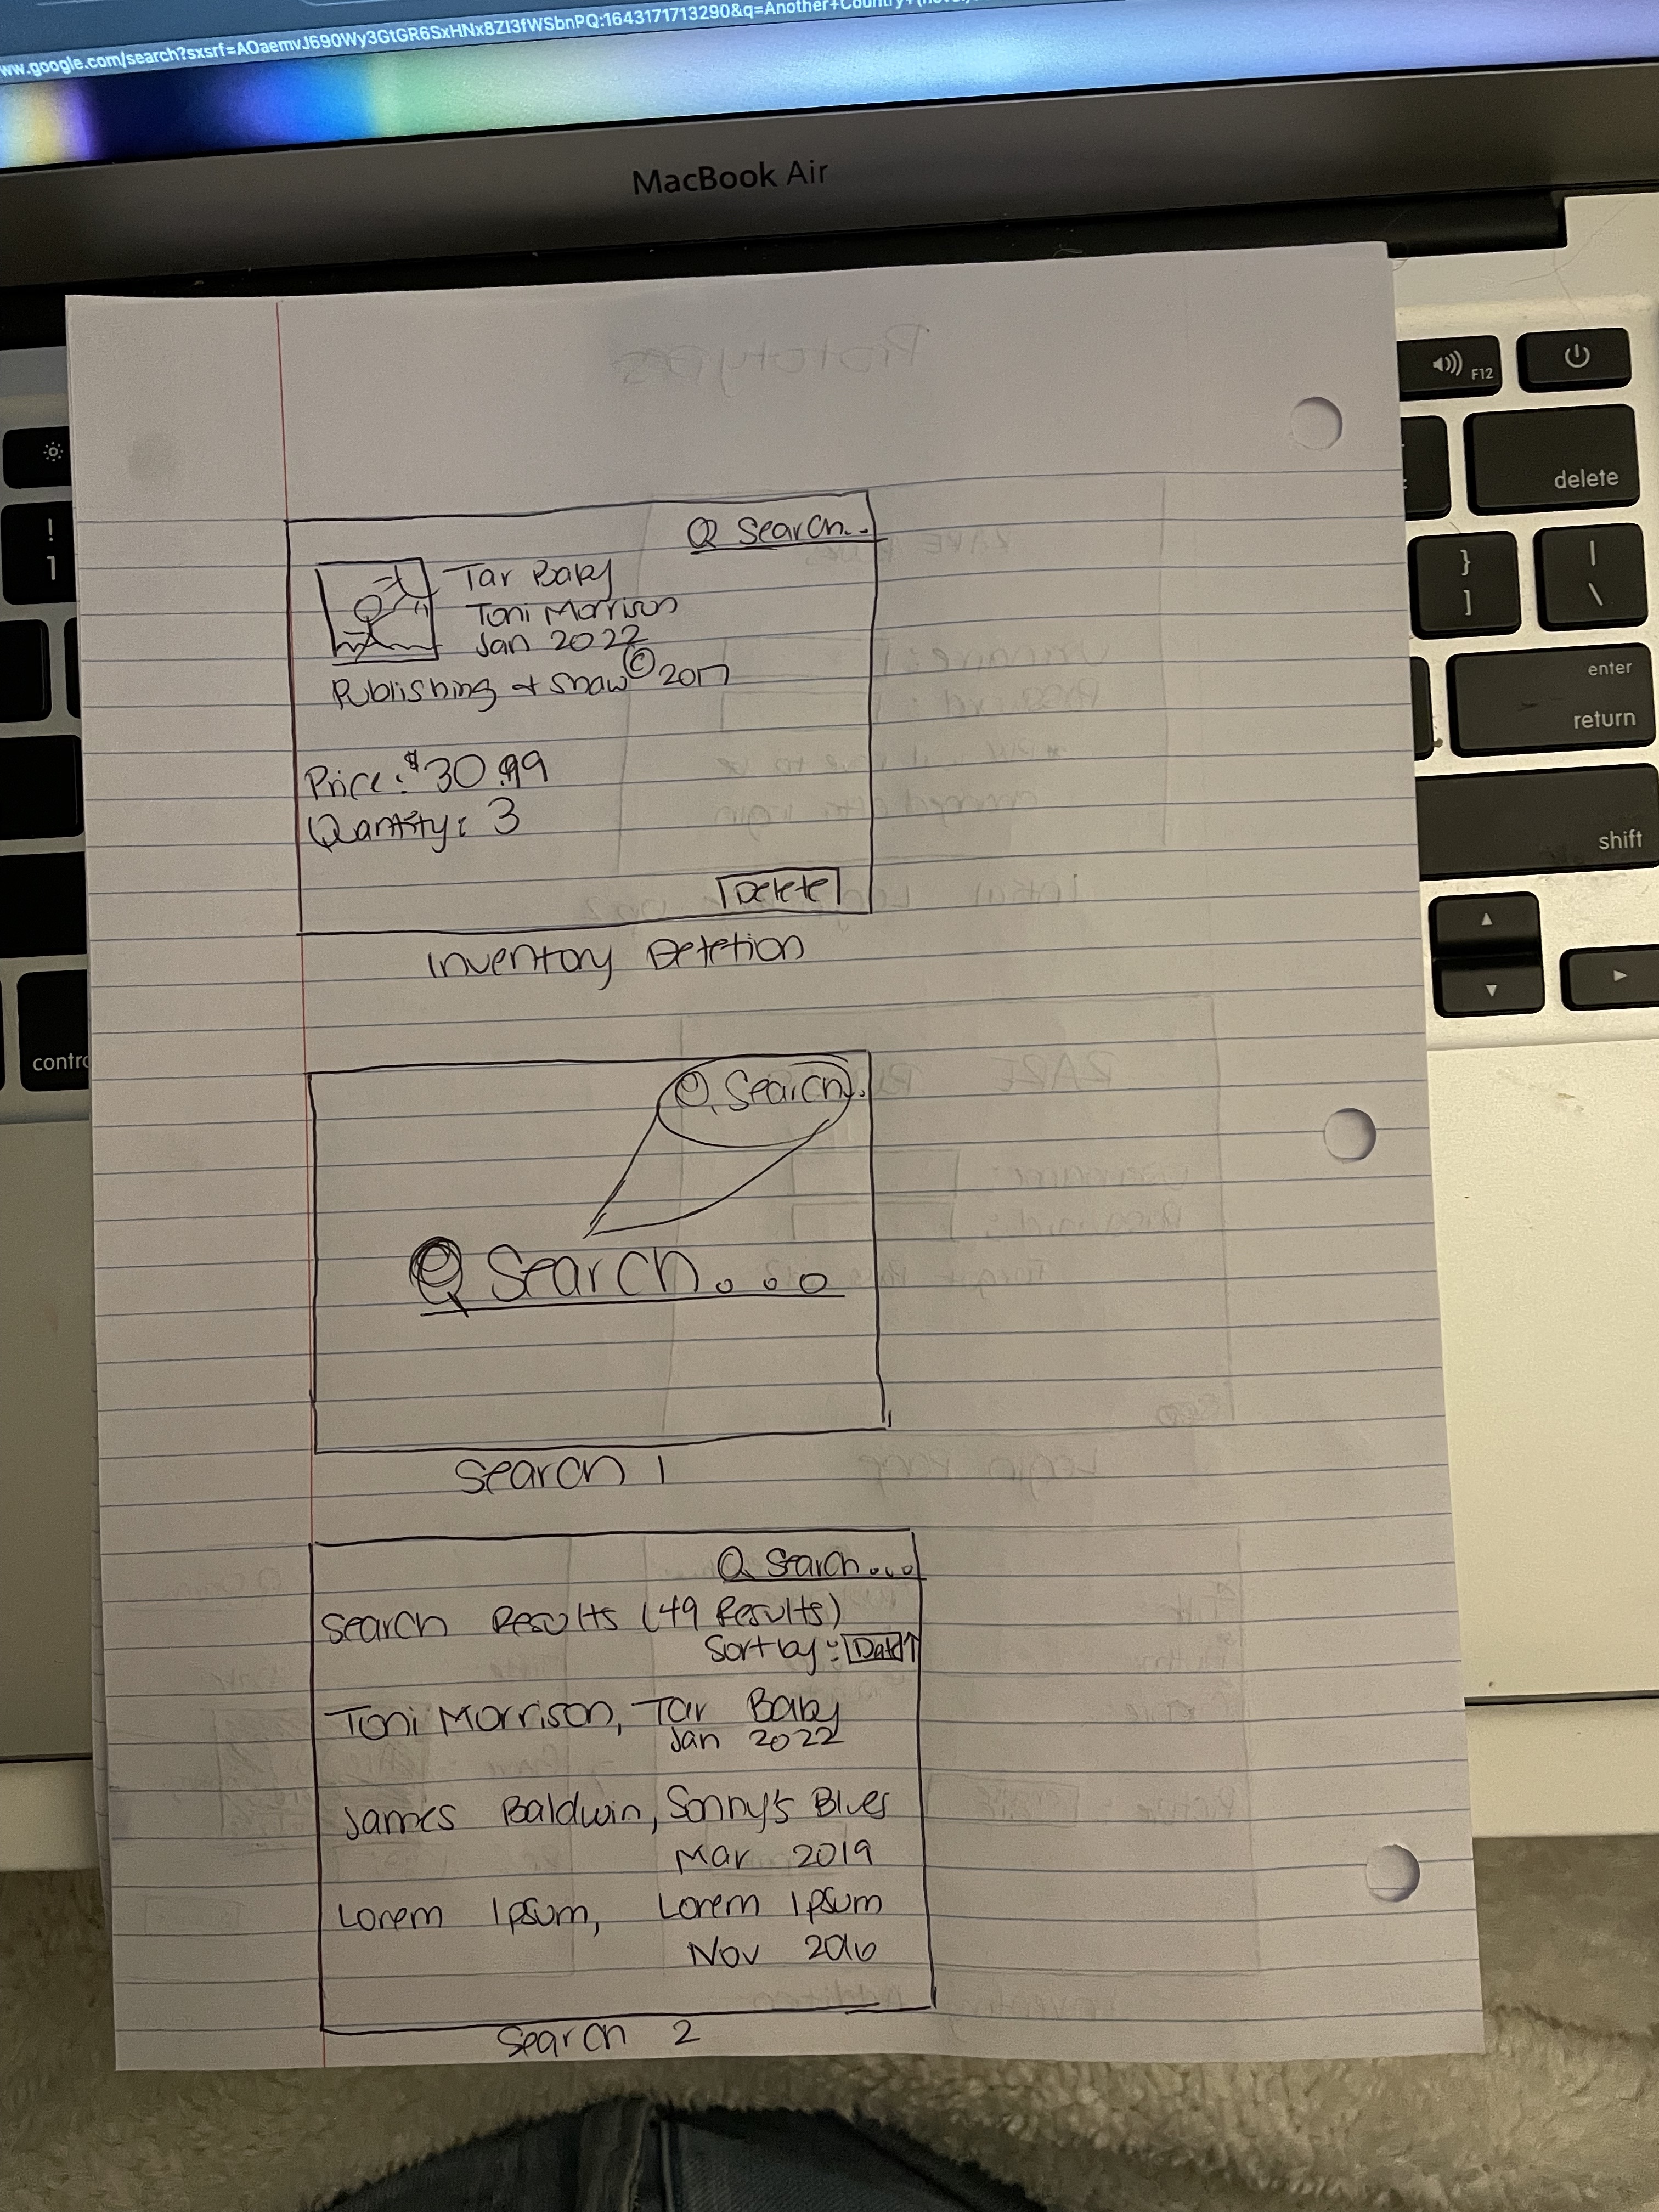 ww.google.com/search?sxsrf=AOaemvJ690Wy3GtGR6SxHNx8ZI3fWSbnPQ:1643171713290&q=Another+Country+(
MacBook Air
F12
delete
!
1
}
]
|
\
enter
return
shift
contro
Prototypes
Search..
Tar Baby
Toni Morrison
Jan 2022
Publishing + Shaw © 2017
Price: $30.99
Quantity: 3
Delete
Inventory Deletion
Search..
Search...
Search 1
Search...
Search Results (49 Results)
Sort by: Date↑
Toni Morrison, Tar Baby
Jan 2022
James Baldwin, Sonny's Blues
Mar 2019
Lorem Ipsum, Lorem Ipsum
Nov 2016
Search 2